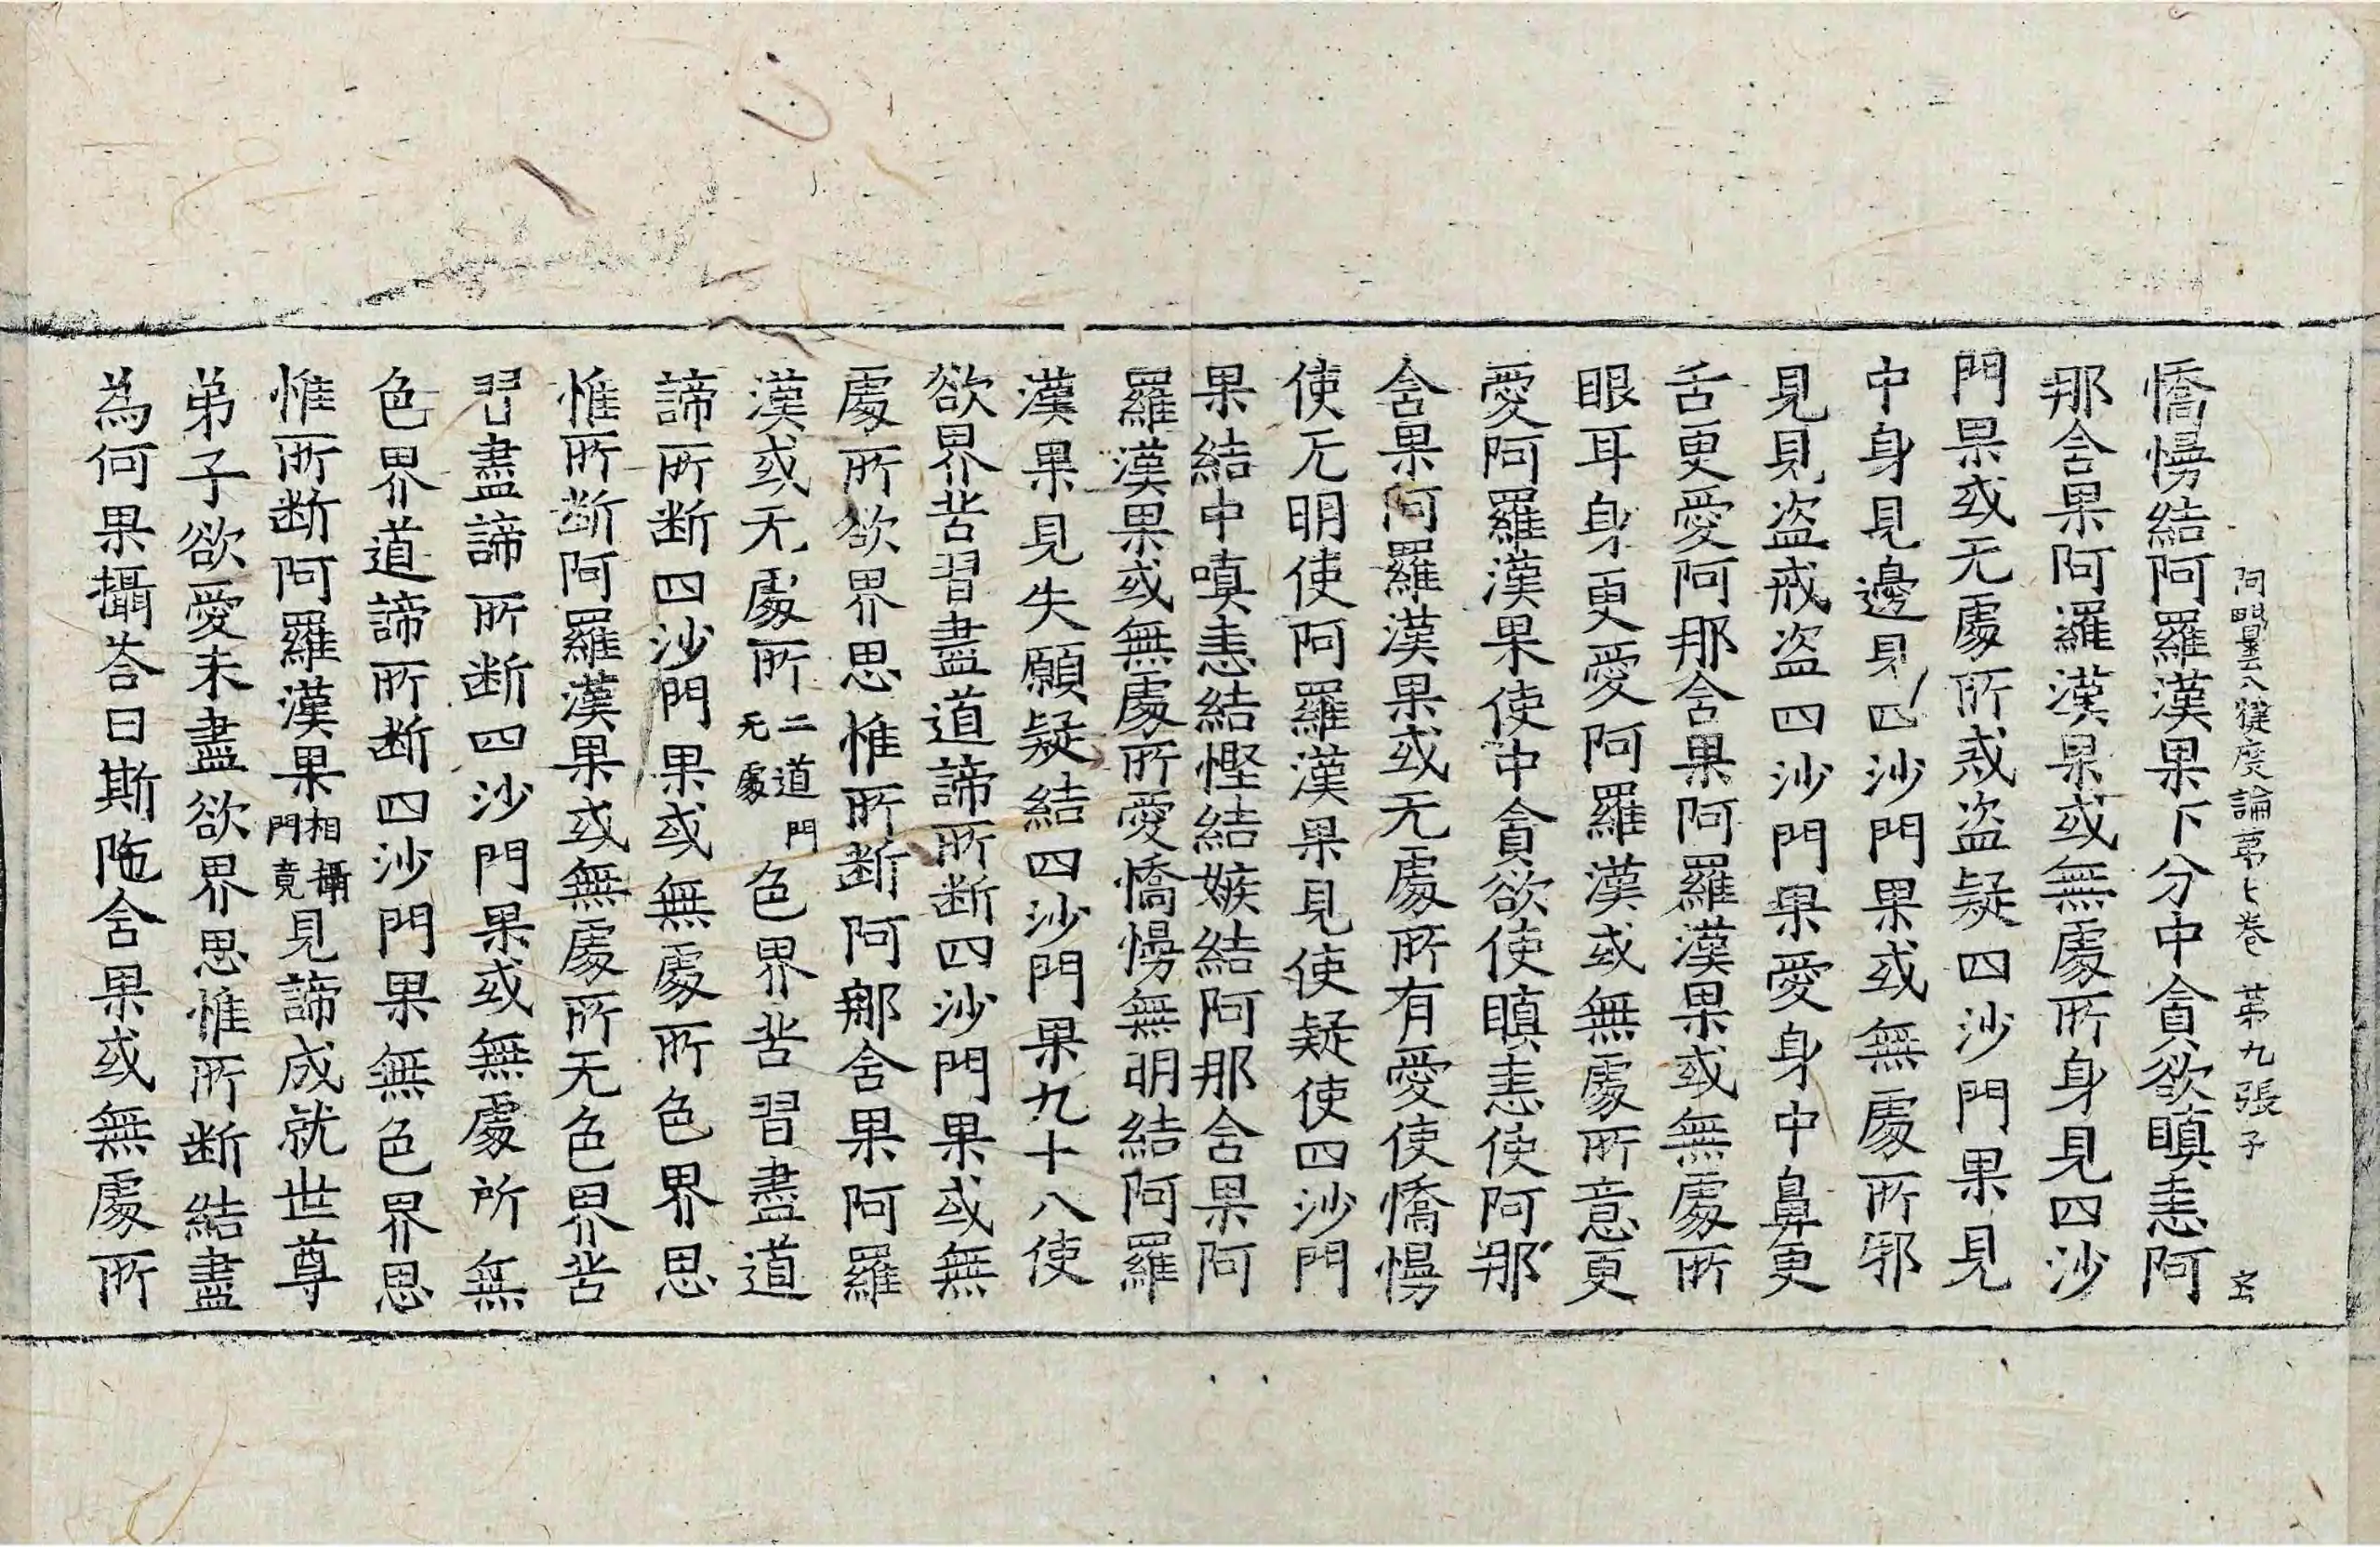 阿毗曇八犍度論第七卷 第九張子 玄
憍慢結阿羅漢果下分中貪欲瞋恚阿
那含果阿羅漢果或無處所身見四沙
門果或无處所戒盗疑四沙門果見
中身見邊見四沙門果或無處所邪
見見盗戒盗四沙門果愛身中鼻更
舌更愛阿那含果阿羅漢果或無處所
眼耳身更愛阿羅漢或無處所意更
愛阿羅漢果使中貪欲使瞋恚使阿那
含果阿羅漢果或无處所有愛使憍慢
使无明使阿羅漢果見使疑使四沙門
果結中嗔恚結慳結嫉結阿那含果阿
羅漢果或無處所愛憍慢無明結阿羅
漢果見失願疑結四沙門果九十八使
欲界苦習盡道諦所断四沙門果或無
處所欲界思惟所断阿那含果阿羅
漢或无處所二道門无處色界苦習盡道
諦所断四沙門果或無處所色界思
惟所斷阿羅漢果或無處所无色界苦
習盡諦所断四沙門果或無處所無
色界道諦所断四沙門果無色界思
惟所断阿羅漢果相攝門竟見諦成就世尊
弟子欲愛未盡欲界思惟所断結盡
為何果攝荅曰斯陁含果或無處所